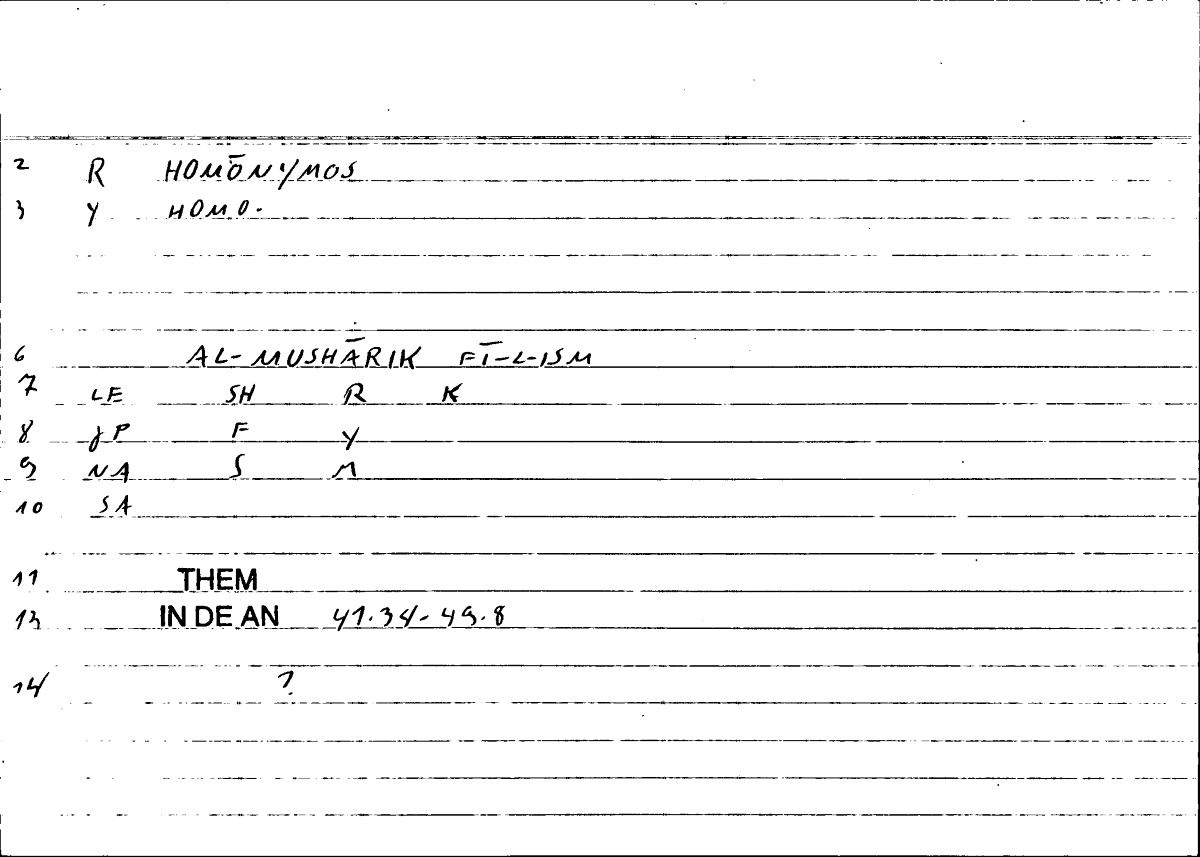 2 R HOMŌNYMOS
3 Y HOMO.
6 AL-MUSHĀRIK FĪ-L-ISM
7 LE SH R K
8 JP F Y
9 NA S M
10 SA
11 THEM
13 IN DE AN 41.34-49.8
14 ?